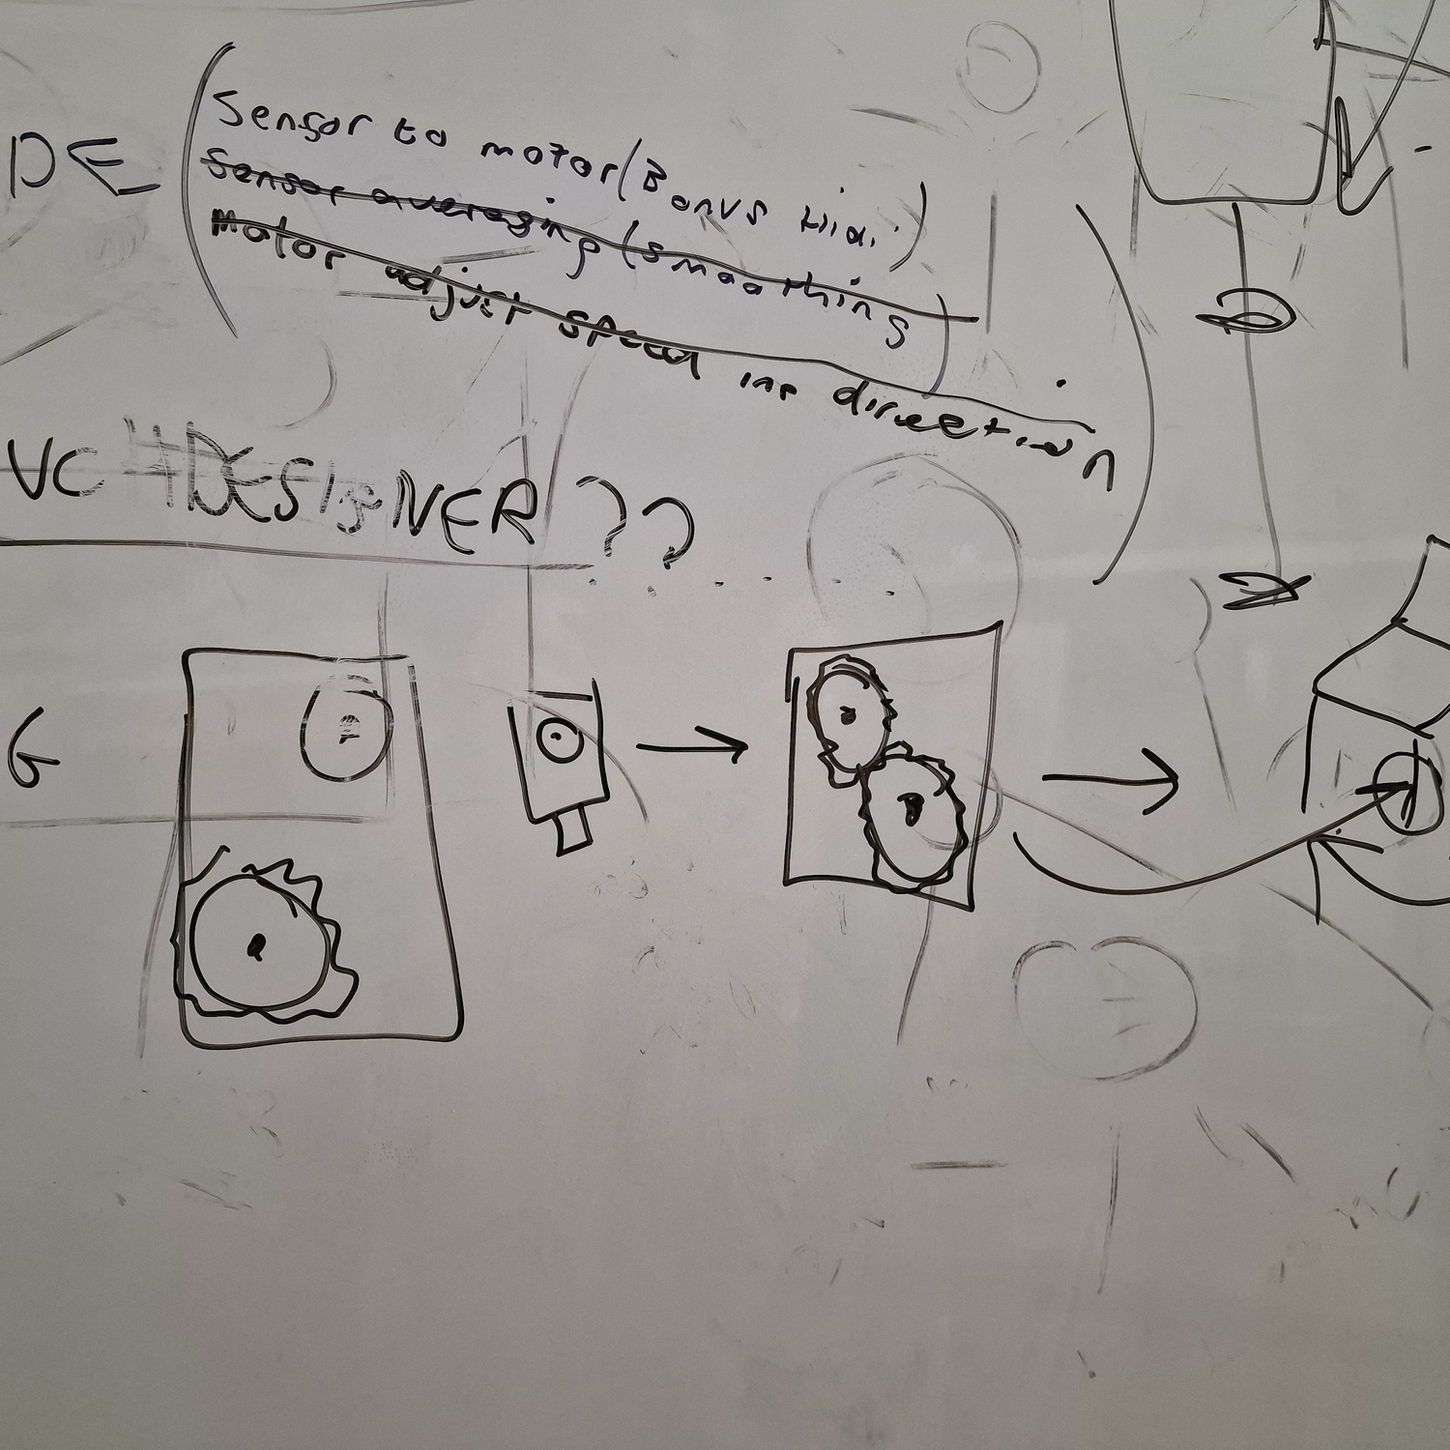 DE
Sensor to motor (Bonus
Sensor averaging (smoothing)
Motor adjust speed direction
VC DESIGNER ??
G